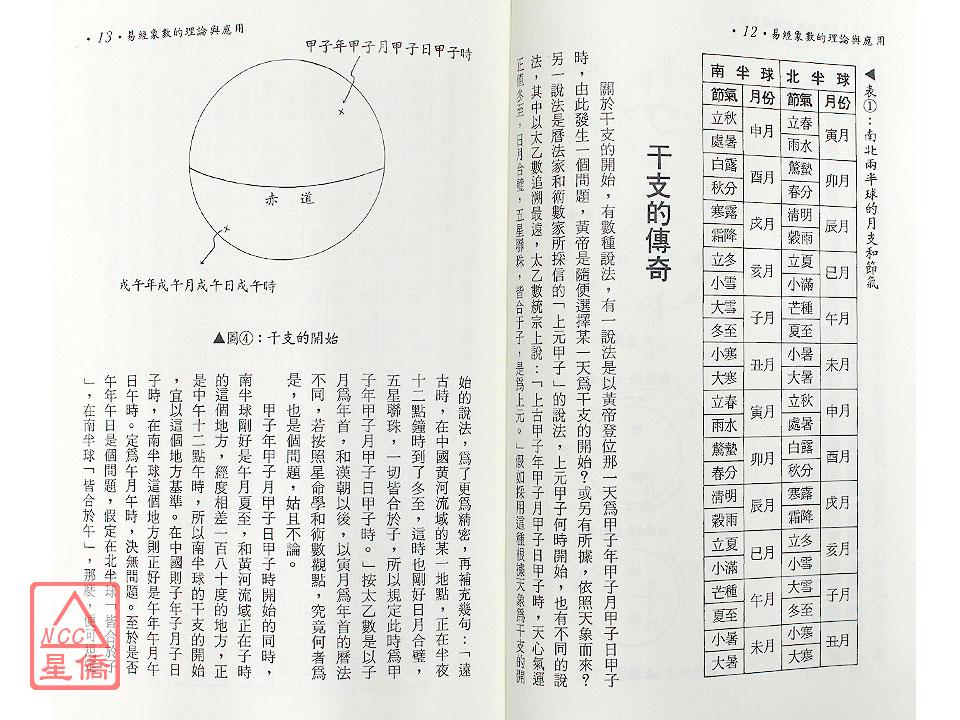 ·12·易經象數的理論與應用
◀表①：南北兩半球的月支和節氣
南半球 北半球
節氣 月份 節氣 月份
立秋 處暑 申月 立春 雨水 寅月
白露 秋分 酉月 驚蟄 春分 卯月
寒露 霜降 戌月 清明 穀雨 辰月
立冬 小雪 亥月 立夏 小滿 巳月
大雪 冬至 子月 芒種 夏至 午月
小寒 大寒 丑月 小暑 大暑 未月
立春 雨水 寅月 立秋 處暑 申月
驚蟄 春分 卯月 白露 秋分 酉月
清明 穀雨 辰月 寒露 霜降 戌月
立夏 小滿 巳月 立冬 小雪 亥月
芒種 夏至 午月 大雪 冬至 子月
小暑 大暑 未月 小寒 大寒 丑月
干支的傳奇
關於干支的開始，有數種說法，有一說法是以黃帝登位那一天爲甲子年甲子月甲子日甲子
時，由此發生一個問題，黃帝是隨便選擇某一天爲干支的開始？或另有所據，依照天象而來？
另一說法是曆法家和術數家所採信的「上元甲子」的說法，上元甲子何時開始，也有不同的說
法，其中以太乙數追溯最遠，太乙數統宗上說：「上古甲子年甲子月甲子日甲子時，天心氣運
正值冬至，日月合璧，五星聯珠，皆合于子，是爲上元。」假如採用這種根據天象爲干支的開
·13·易經象數的理論與應用
甲子年甲子月甲子日甲子時
赤道
戊午年戊午月戊午日戊午時
▲圖④：干支的開始
始的說法，爲了更爲精密，再補充幾句：「遠
古時，在中國黃河流域的某一地點，正在半夜
十二點鐘時到了冬至，這時也剛好日月合璧，
五星聯珠，一切皆合於子，所以規定此時爲甲
子年甲子月甲子日甲子時。」按太乙數是以子
月爲年首，和漢朝以後，以寅月爲年首的曆法
不同，若按照星命學和術數觀點，究竟何者爲
是，也是個問題，姑且不論。
甲子年甲子月甲子日甲子時開始的同時，
南半球剛好是午月夏至，和黃河流域正在子時
的這個地方，經度相差一百八十度的地方，正
是中午十二點午時，所以南半球的干支的開始
，宜以這個地方基準。在中國則子年子月子日
子時，在南半球這個地方則正好是午年午月午
日午時。定爲午月午時，決無問題。至於是否
午年午日是個問題，假定在北半球「皆合於子
」，在南半球「皆合於午」，那麼，便可規定
NCC
星僑